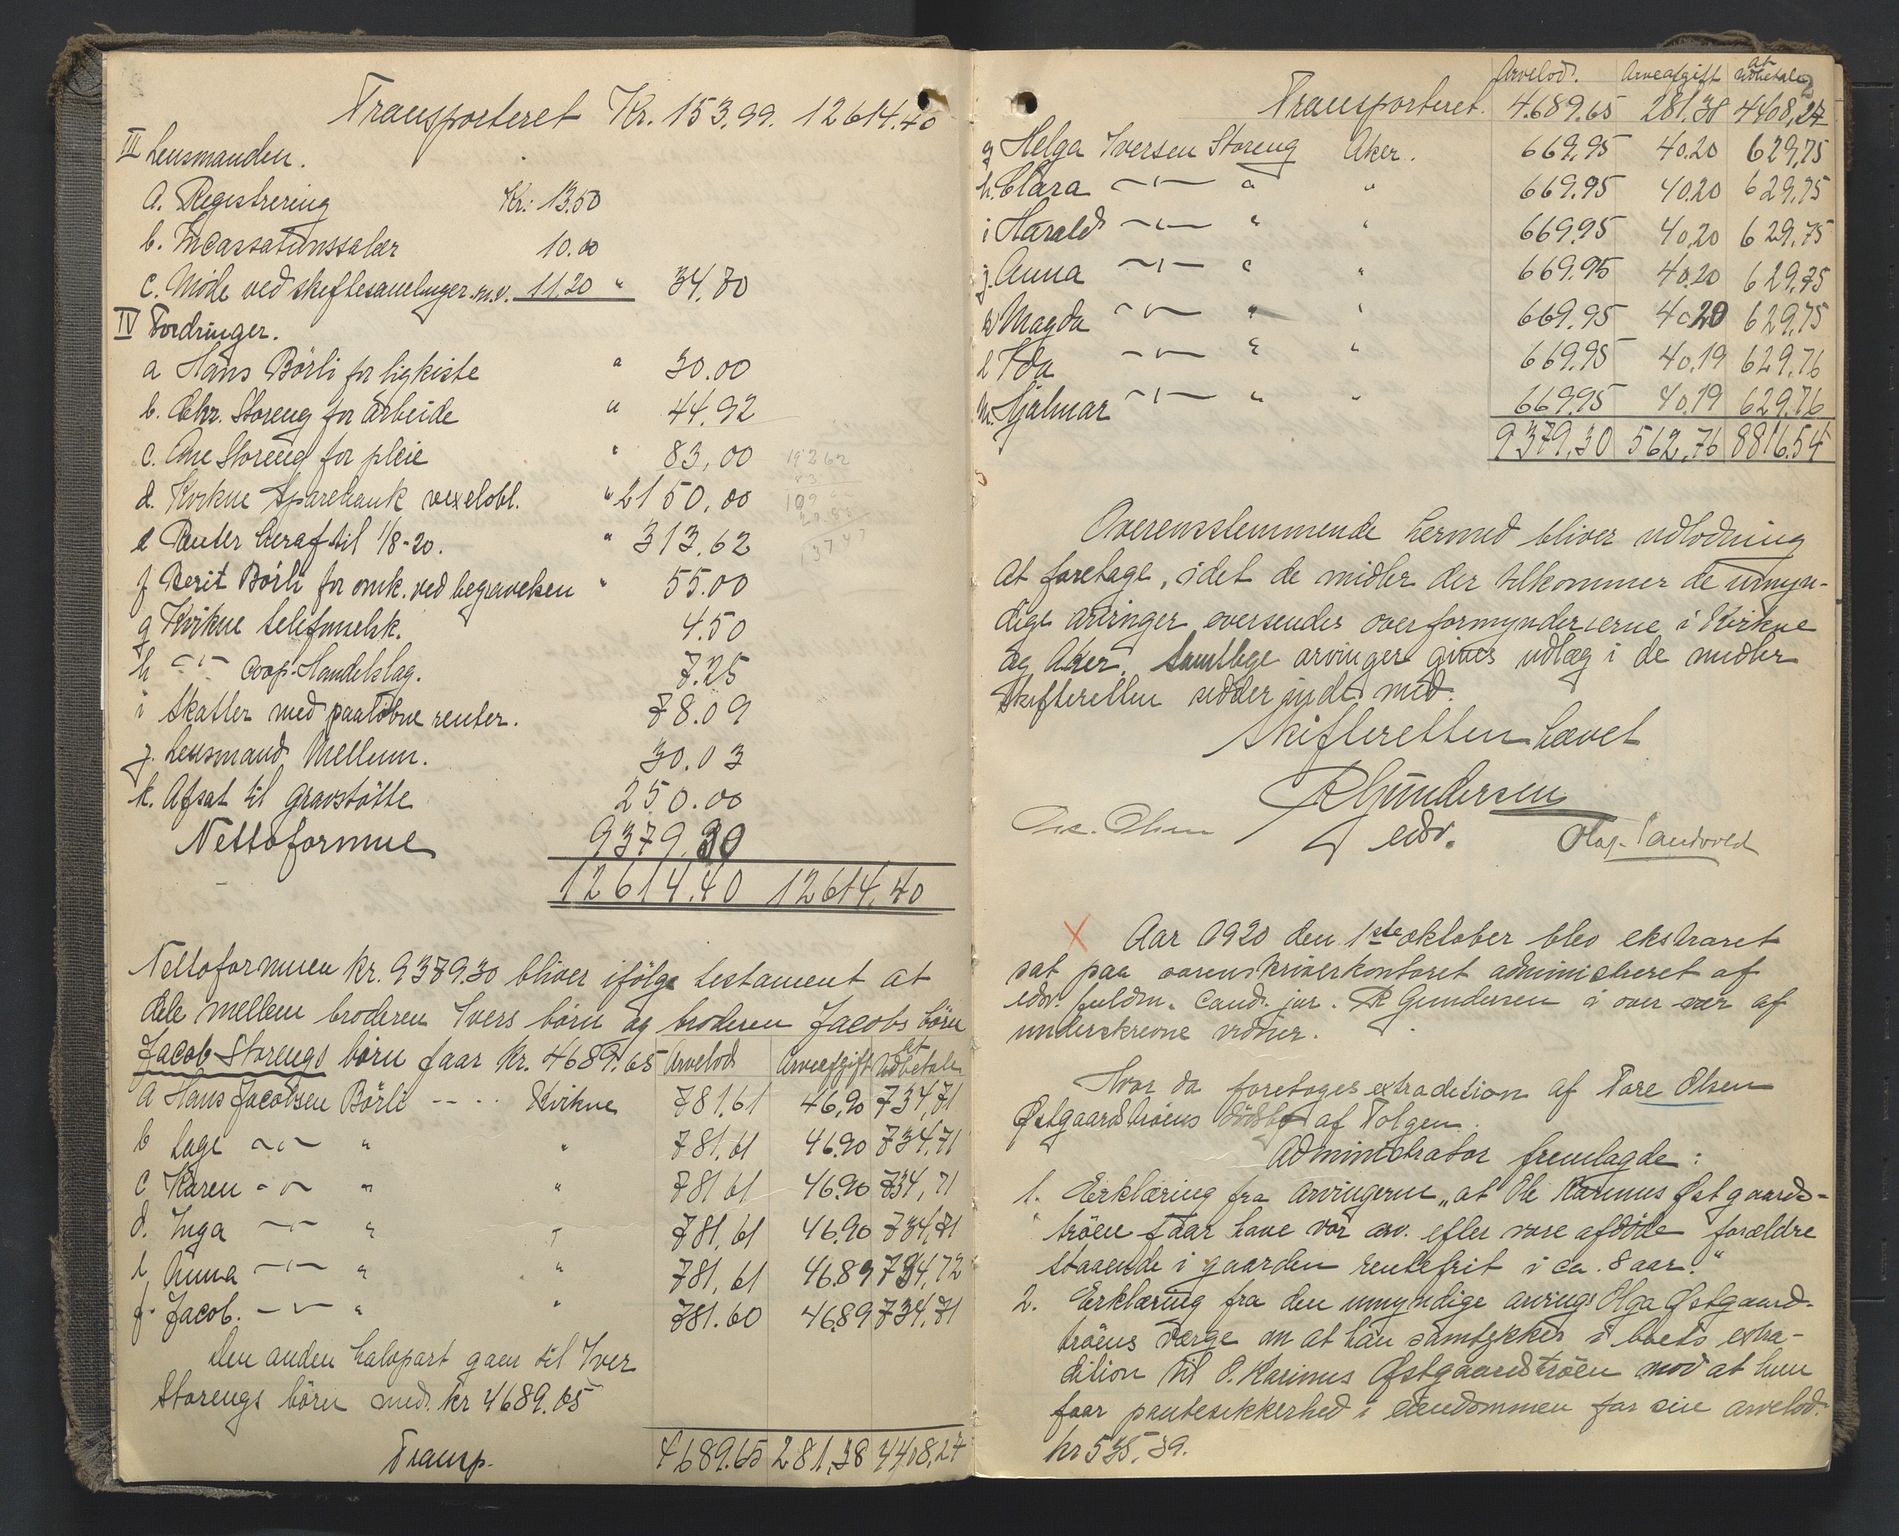 Transporteret Kr. 153.99. 12614.40
III Lensmanden.
a. Registrering Kr. 13.50
b. Incassationssalær 10.00
c. Möde ved skiftesamlinger m.v. 11.20 " 34.70
IV Fordringer.
a Hans Börli for ligkiste " 30.00
b. Chr. Storeng for arbeide " 44.92
c. Ane Storeng for pleie " 83.00
d. Kvikne Sparebank vexelobl. " 2150.00
e Renter heraf til 1/8-20. " 313.62
f Berit Börli for omk. ved begravelsen " 55.00
g Kvikne telefonselsk. 4.50
h -"- Coop. Handelslag. 7.25
i Skatter med paalöbne renter. 78.09
j. Lensmand Mellum. 30.03
k. Afsat til gravstötte 250.00
Nettoformue 9379.30
12614.40 12614.40
Nettoformuen kr. 9379.30 bliver ifölge testament at
dele mellem broderen Ivers börn og broderen Jacobs börn
Jacob Storengs börn faar kr. 4689.65 Arvelod Arveafgift At udbetale
a Hans Jacobsen Börli -- .. Kvikne 781.61 46.90 734.71
b Lage -"- " " 781.61 46.90 734.71
c Karen -"- " " 781.61 46.90 734.71
d. Inga -"- " " 781.61 46.90 734.71
e Anna -"- " " 781.61 46.89 734.72
f. Jacob. -"- " " 781.60 46.89 734.71
Den anden halvpart gaar til Iver
Storengs börn med kr 4689.65
Transp. 4689.65 281.38 4408.27
Arvelod. Arveafgift at udbetale
2
Transporteret. 4689.65 281.38 4408,27
g Helga Iversen Storeng Aker. 669.95 40.20 629,75
h. Clara -"- " " 669.95 40.20 629,75
i Harald -"- " " 669.95 40.20 629.75
j. Anna -"- " " 669.95 40.20 629.75
k Magda -"- " " 669.95 40.20 629.75
l Ida -"- " " 669.95 40.19 629.76
m. Hjalmar -"- " " 669.95 40.19 629.76
9379.30 562.76 8816.54
Overensstemmende hermed bliver udlodning
at foretage, idet de midler der tilkommer de umyn-
dige arvinger oversendes overformynderierne i Kvikne
og Aker. Samtlige arvinger gives udlæg i de midler
skifteretten sidder inde med.
Skifteretten hævet
R Gundersen
edv.
Chr. Olsen Olaf Sandvold
X Aar 1920 den 1ste oktober blev ekstraret
sat paa sorenskriverkontoret administreret af
edsv. fuldm. cand. jur. R Gundersen i overvær af
underskrevne vidner.
Hvor da foretoges extradition af Tore Olsen
Østgaardströens dödsbo af Tolgen.
Administrator fremlagde:
1. Erklæring fra arvingerne „at Ole Karinus Østgaards-
tröen faar have vor arv. efter vore afdöde forældre
staaende i gaarden rentefrit i ca. 8 aar."
2. Erklæring fra den umyndige arving Olga Østgaard-
tröens værge om at han samtykker i boets extra-
dition til O. Karinus Østgaardströen mod at hun
faar pantesikkerhed i eiendommen for sin arvelod.
kr 535.39.